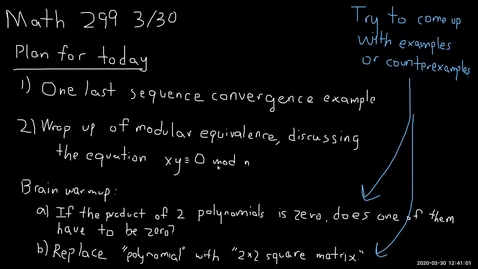 Math 299 3/30
Try to come up
with examples
or counterexamples
Plan for today
1) One last sequence convergence example
2) Wrap up of modular equivalence, discussing
the equation xy≡0 mod n
Brain warmup:
a) If the product of 2 polynomials is zero, does one of them
have to be zero?
b) Replace "polynomial" with "2×2 square matrix."
2020-03-30 12:41:01